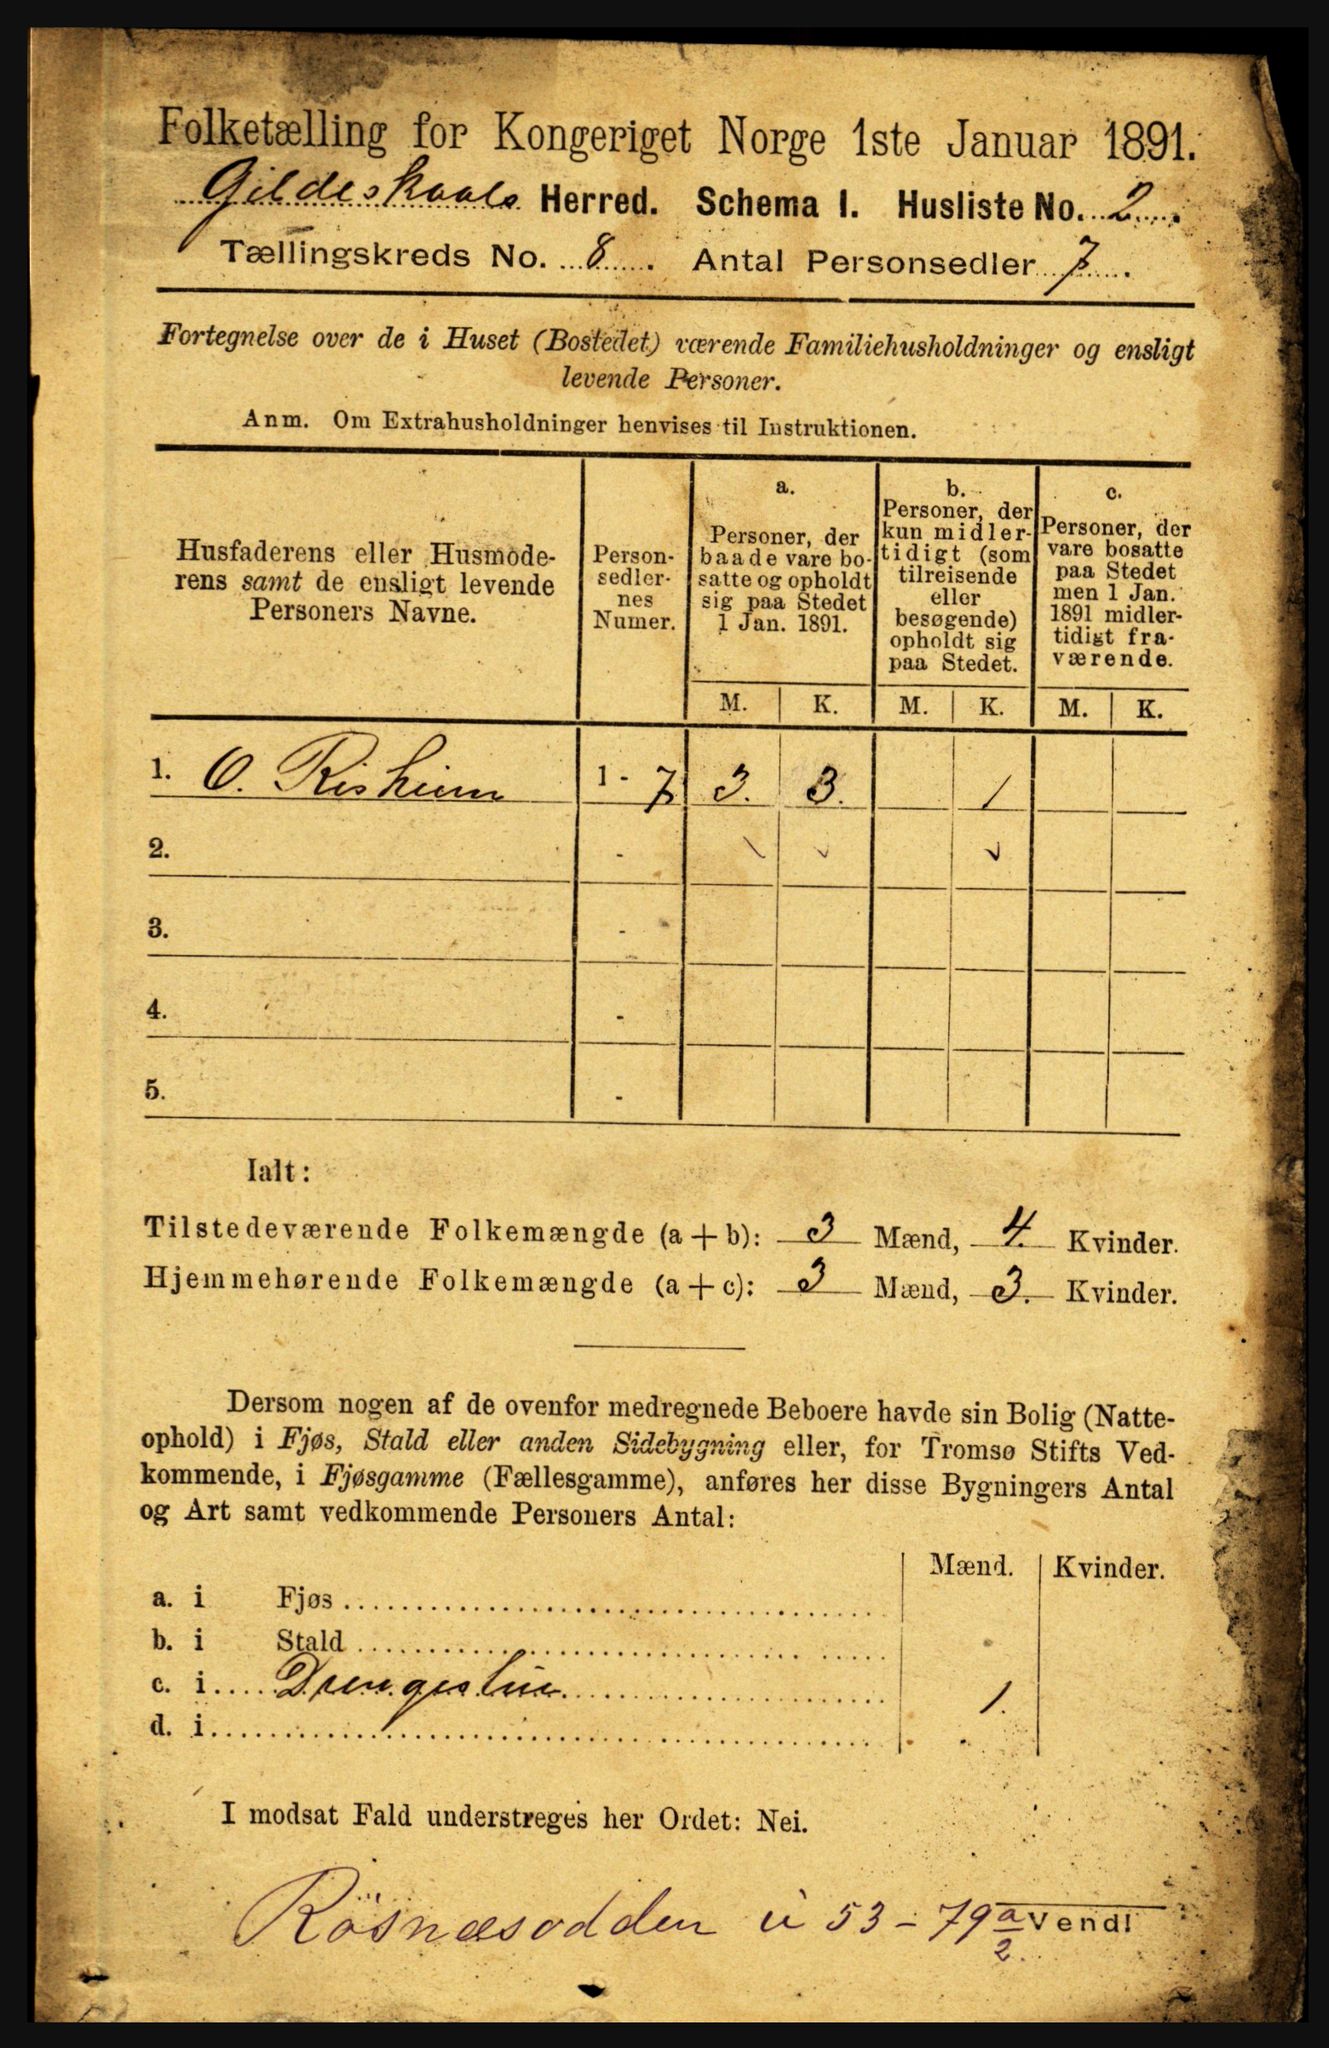 Folketælling for Kongeriget Norge 1ste Januar 1891.
Gildeskaals Herred. Schema I. Husliste No. 2.
Tællingskreds No. 8. Antal Personsedler 7.
Fortegnelse over de i Huset (Bostedet) værende Familiehusholdninger og ensligt
levende Personer.
Anm. Om Extrahusholdninger henvises til Instruktionen.
Husfaderens eller Husmode-
rens samt de ensligt levende
Personers Navne.
Person-
sedler-
nes
Numer.
a.
Personer, der
baade vare bo-
satte og opholdt
sig paa Stedet
1 Jan. 1891.
b.
Personer, der
kun midler-
tidigt (som
tilreisende
eller
besøgende)
opholdt sig
paa Stedet.
c.
Personer, der
vare bosatte
paa Stedet
men 1 Jan.
1891 midler-
tidigt fra-
værende.
M. K. M. K. M. K.
1. O. Risheim 1 - 7 3. 3. 1
2. -
3. -
4. -
5. -
Ialt:
Tilstedeværende Folkemængde (a + b): 3 Mænd, 4. Kvinder.
Hjemmehørende Folkemængde (a + c): 3 Mænd, 3. Kvinder.
Dersom nogen af de ovenfor medregnede Beboere havde sin Bolig (Natte-
ophold) i Fjøs, Stald eller anden Sidebygning eller, for Tromsø Stifts Ved-
kommende, i Fjøsgamme (Fællesgamme), anføres her disse Bygningers Antal
og Art samt vedkommende Personers Antal:
Mænd. Kvinder.
a. i Fjøs
b. i Stald
c. i Drengestue 1.
d. i
I modsat Fald understreges her Ordet: Nei.
Rösnæsodden i 53 - 79 a/2 Vend!